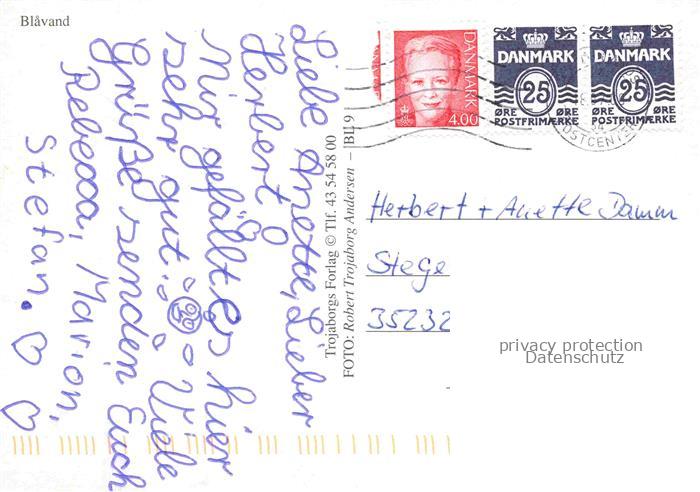 Blåvand
Liebe Anette, Lieber
Herbert
Mir gefällt es hier
sehr gut. Viele
Grüße senden Euch
Rebecca, Marion,
Stefan.
Trojaborgs Forlag © Tlf. 43 54 58 00
FOTO: Robert Trojaborg Andersen – BLI 9
DANMARK
4.00
DANMARK
25
ØRE
POSTFRIMÆRKE
DANMARK
25
ØRE
POSTFRIMÆRKE
POSTCENTER
Herbert + Anette Damm
Stege
35232
privacy protection
Datenschutz